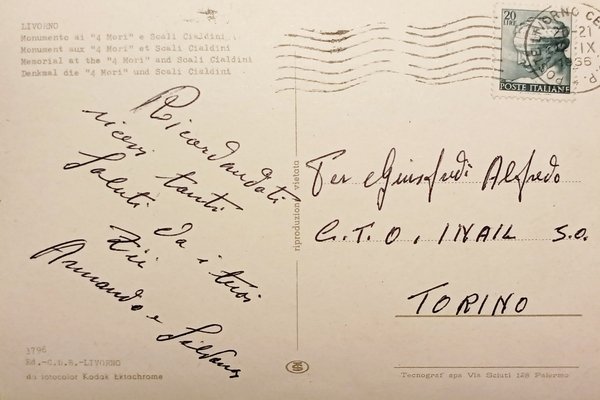 LIVORNO
Monumento ai "4 Mori" e Scali Cialdini
Monument aux "4 Mori" et Scali Cialdini
Memorial at the "4 Mori" and Scali Cialdini
Denkmal die "4 Mori" und Scali Cialdini
20
LIRE
POSTE ITALIANE
LIVORNO
21
IX
Ricordandoti
ricevi tanti
saluti da i tuoi
Zii
Armando e Silvana
riproduzione vietata
Per Alfredo
C.T.O. INAIL S.O.
TORINO
3796
Ed.-C.D.B.-LIVORNO
da fotocolor Kodak Ektachrome
Tecnograf spa Via Sciuti 128 Palermo